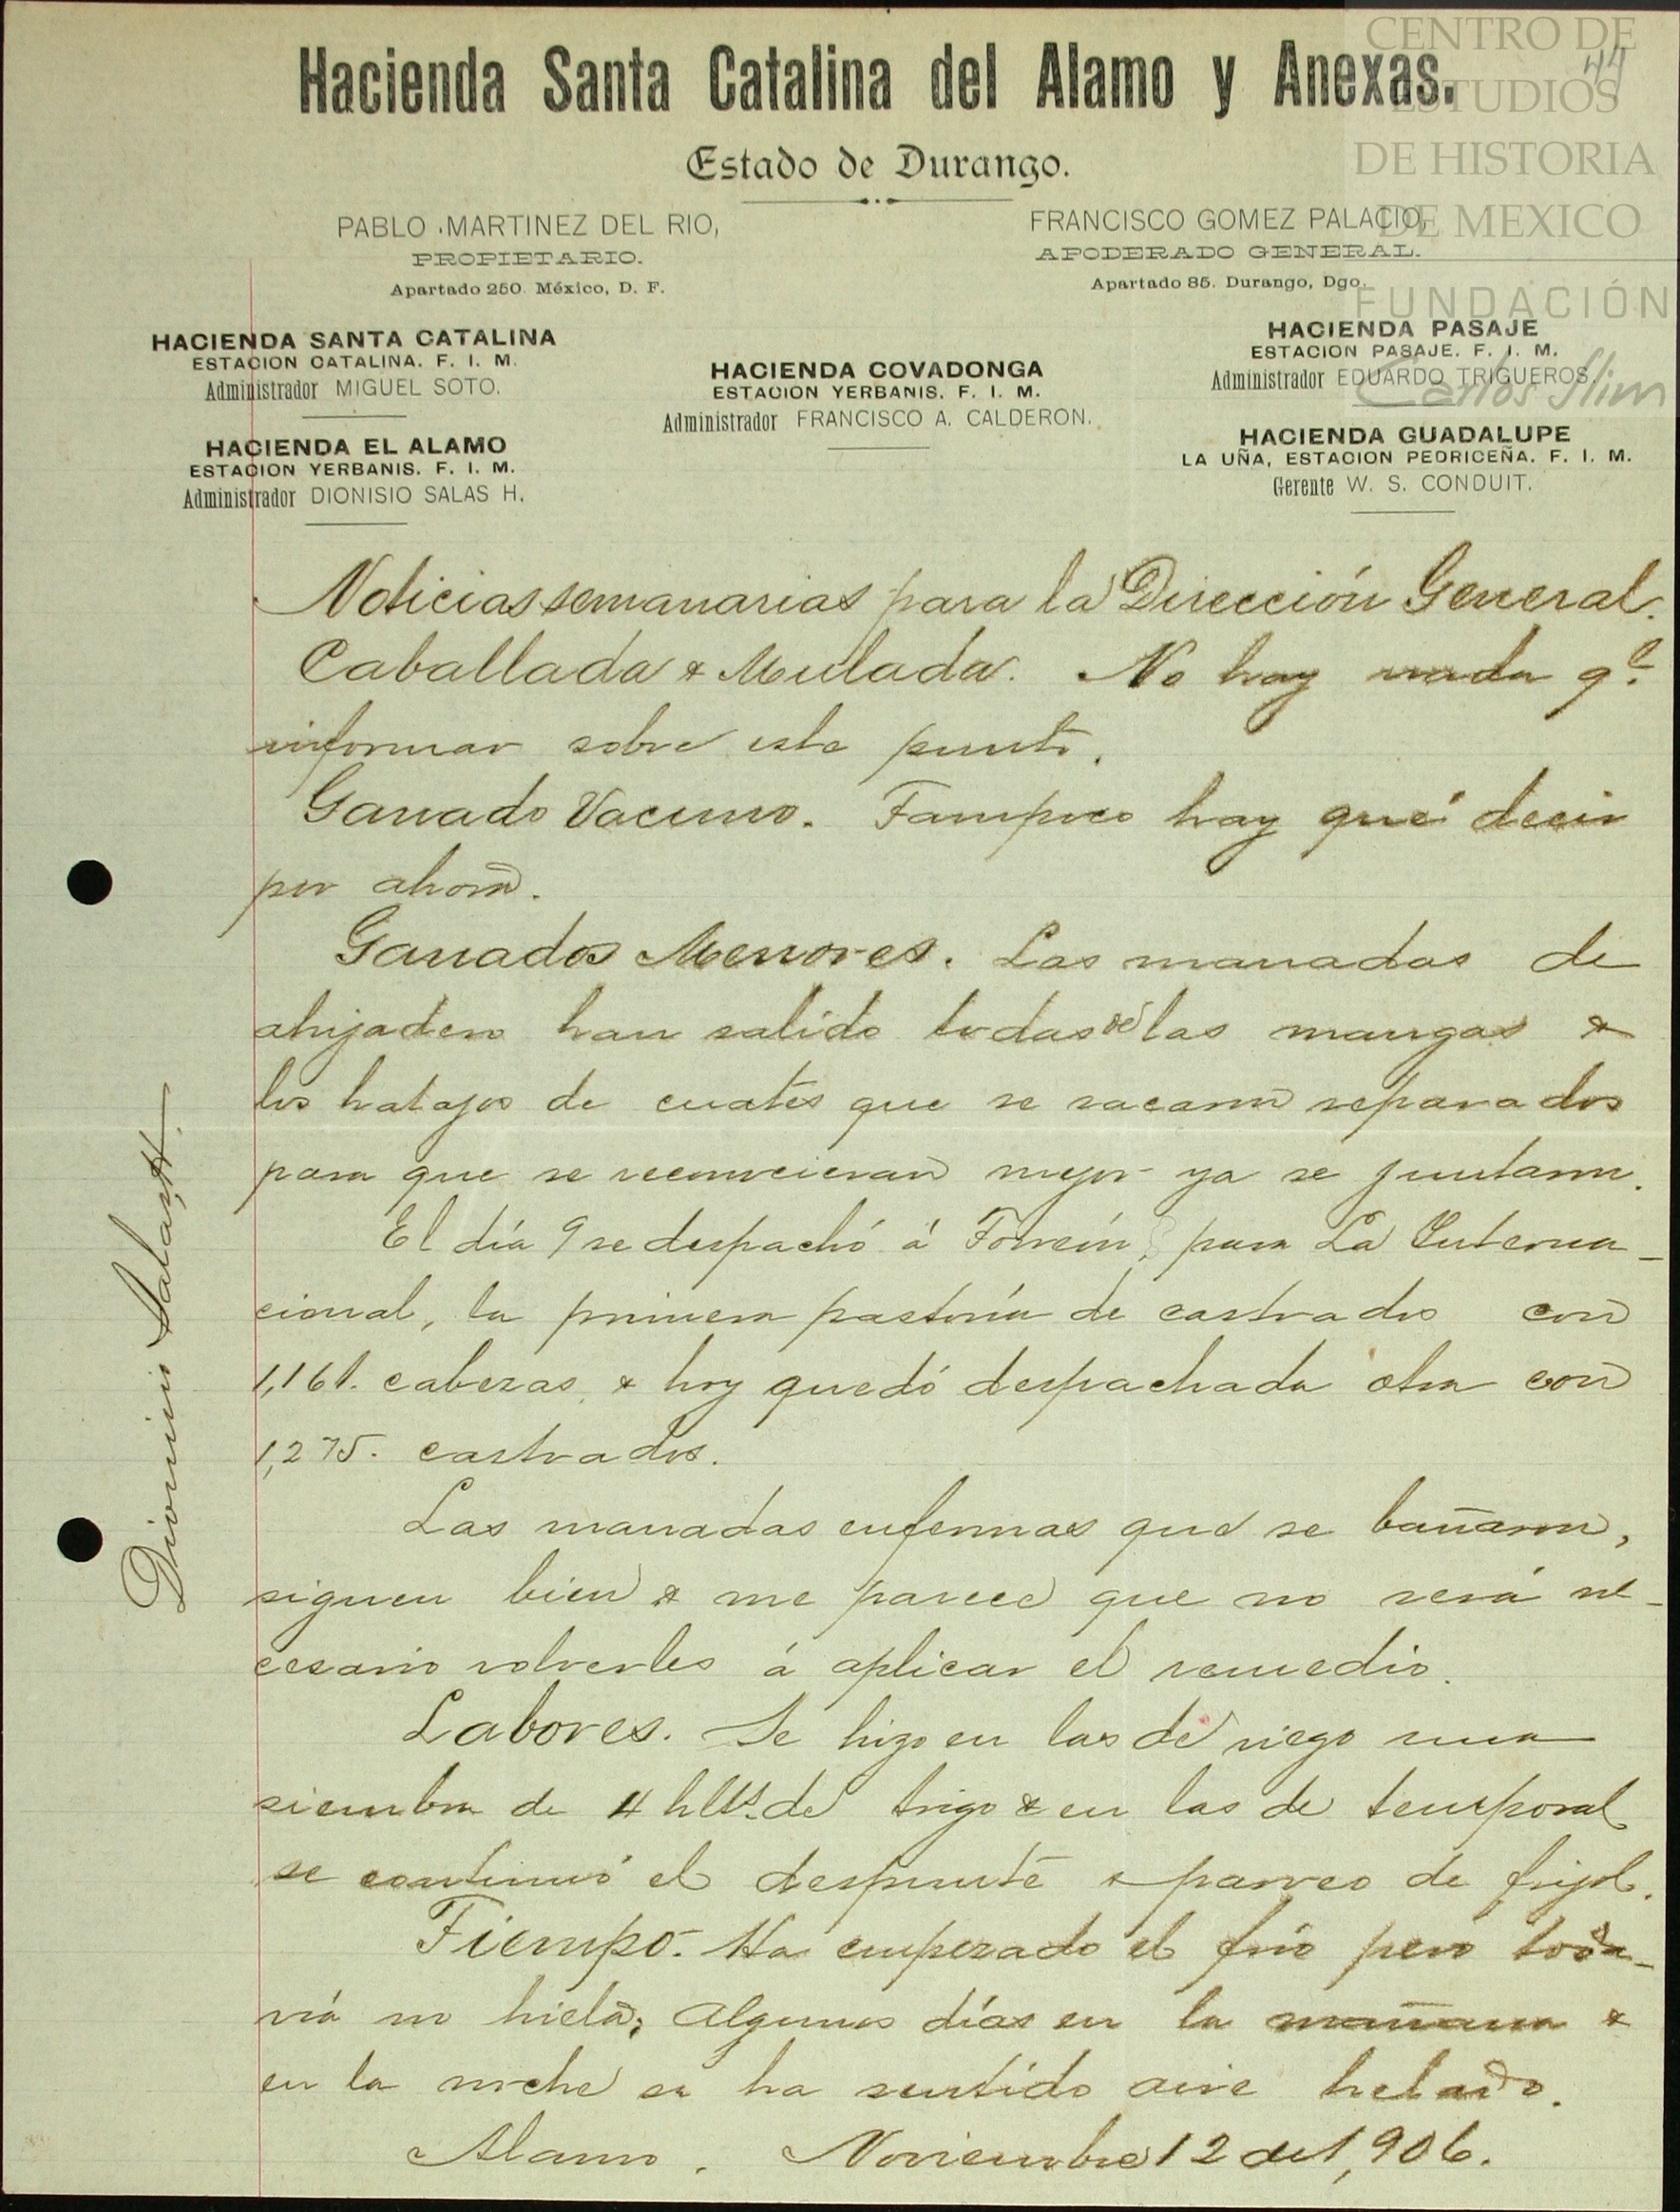 CENTRO DE
ESTUDIOS
DE HISTORIA
DE MEXICO
FUNDACIÓN
Carlos Slim
44
Hacienda Santa Catalina del Alamo y Anexas.
Estado de Durango.
PABLO MARTINEZ DEL RIO,
PROPIETARIO.
Apartado 250. México, D. F.
FRANCISCO GOMEZ PALACIO,
APODERADO GENERAL.
Apartado 85. Durango, Dgo.
HACIENDA SANTA CATALINA
ESTACION CATALINA. F. I. M.
Administrador MIGUEL SOTO.
HACIENDA EL ALAMO
ESTACION YERBANIS. F. I. M.
Administrador DIONISIO SALAS H.
HACIENDA COVADONGA
ESTACION YERBANIS. F. I. M.
Administrador FRANCISCO A. CALDERON.
HACIENDA PASAJE
ESTACION PASAJE. F. I. M.
Administrador EDUARDO TRIGUEROS.
HACIENDA GUADALUPE
LA UÑA, ESTACION PEDRICEÑA. F. I. M.
Gerente W. S. CONDUIT.
Noticias semanarias para la Dirección General.
Caballada & Mulada. No hay nada qe.
informar sobre este punto.
Ganado Vacuno. Tampoco hay qué decir
por ahora.
Ganados Menores. Las manadas de
ahijadero han salido todas de las mangas &
los hatajos de cuates que se sacaron separados
para que se reconocieran mejor ya se juntaron.
El día 9 se despachó á Torreón, para La Interna-
cional, la primera pastoría de castrados con
1,161. cabezas, & hoy quedó despachada otra con
1,275. castrados.
Las manadas enfermas que se bañaron,
siguen bien & me parece que no será ne-
cesario volverles á aplicar el remedio.
Labores. Se hizo en las de riego una
siembra de 4 hlts. de trigo & en las de temporal
se continuó el despunte & parveo de frijol.
Tiempo. Ha empezado el frío pero toda-
vía no hiela; algunos días en la mañana &
en la noche se ha sentido aire helado.
Alamo. Noviembre 12 de 1,906.
Dionisio Salas H.